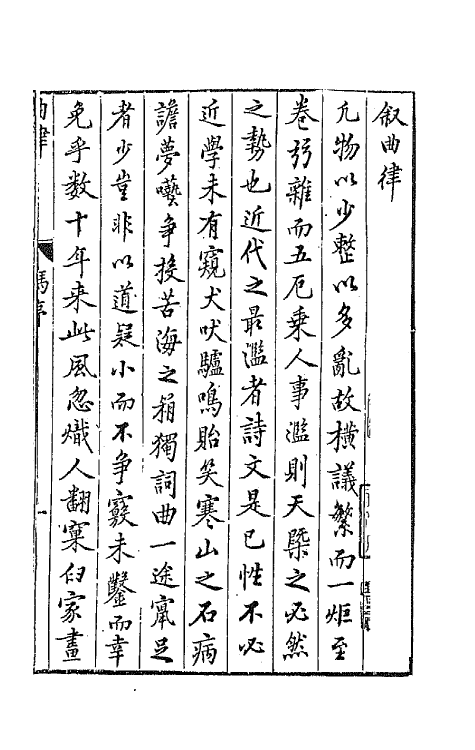 叙曲律
凢物以少整以多亂故橫議繁而一炬至
卷䛕雜而五厄乗人事濫則天槩之必然
之勢也近代之最濫者詩文是已性不必
近學未有窺犬吠驢鳴貽笑寒山之石病
譫夢囈爭投苦海之箱獨詞曲一途竄足
者少豈非以道疑小而不争竅未鑿而幸
免乎数十年来此風忽熾人翻窠臼家畫
曲律
馮序
一